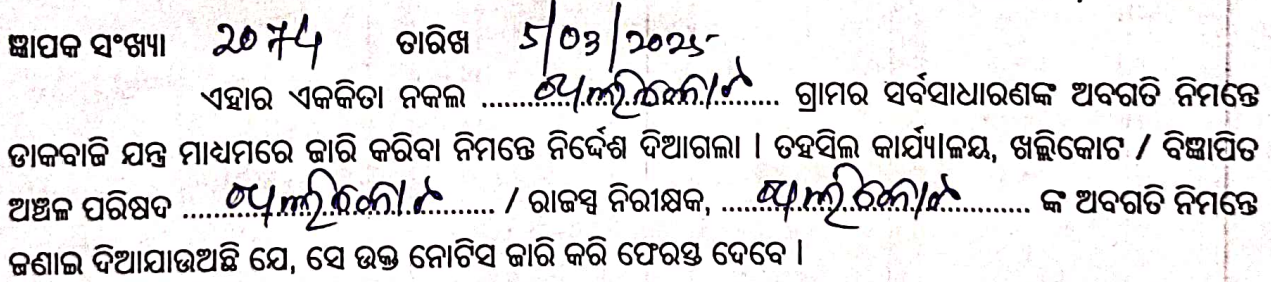 ଜ୍ଞାପକ ସଂଖ୍ୟା 2074 ତାରିଖ 5/03/2025
ଏହାର ଏକକିତା ନକଲ ..... ଖଲ୍ଲିକୋଟ ..... ଗ୍ରାମର ସର୍ବସାଧାରଣଙ୍କ ଅବଗତି ନିମନ୍ତେ
ଡାକବାଜି ଯନ୍ତ୍ର ମାଧ୍ୟମରେ ଜାରି କରିବା ନିମନ୍ତେ ନିର୍ଦ୍ଦେଶ ଦିଆଗଲା । ତହସିଲ କାର୍ଯ୍ୟାଳୟ, ଖଲ୍ଲିକୋଟ / ବିଜ୍ଞାପିତ
ଅଞ୍ଚଳ ପରିଷଦ ..... ଖଲ୍ଲିକୋଟ ..... / ରାଜସ୍ୱ ନିରୀକ୍ଷକ, ..... ଖଲ୍ଲିକୋଟ ..... ଙ୍କ ଅବଗତି ନିମନ୍ତେ
ଜଣାଇ ଦିଆଯାଉଅଛି ଯେ, ସେ ଉକ୍ତ ନୋଟିସ ଜାରି କରି ଫେରସ୍ତ ଦେବେ ।